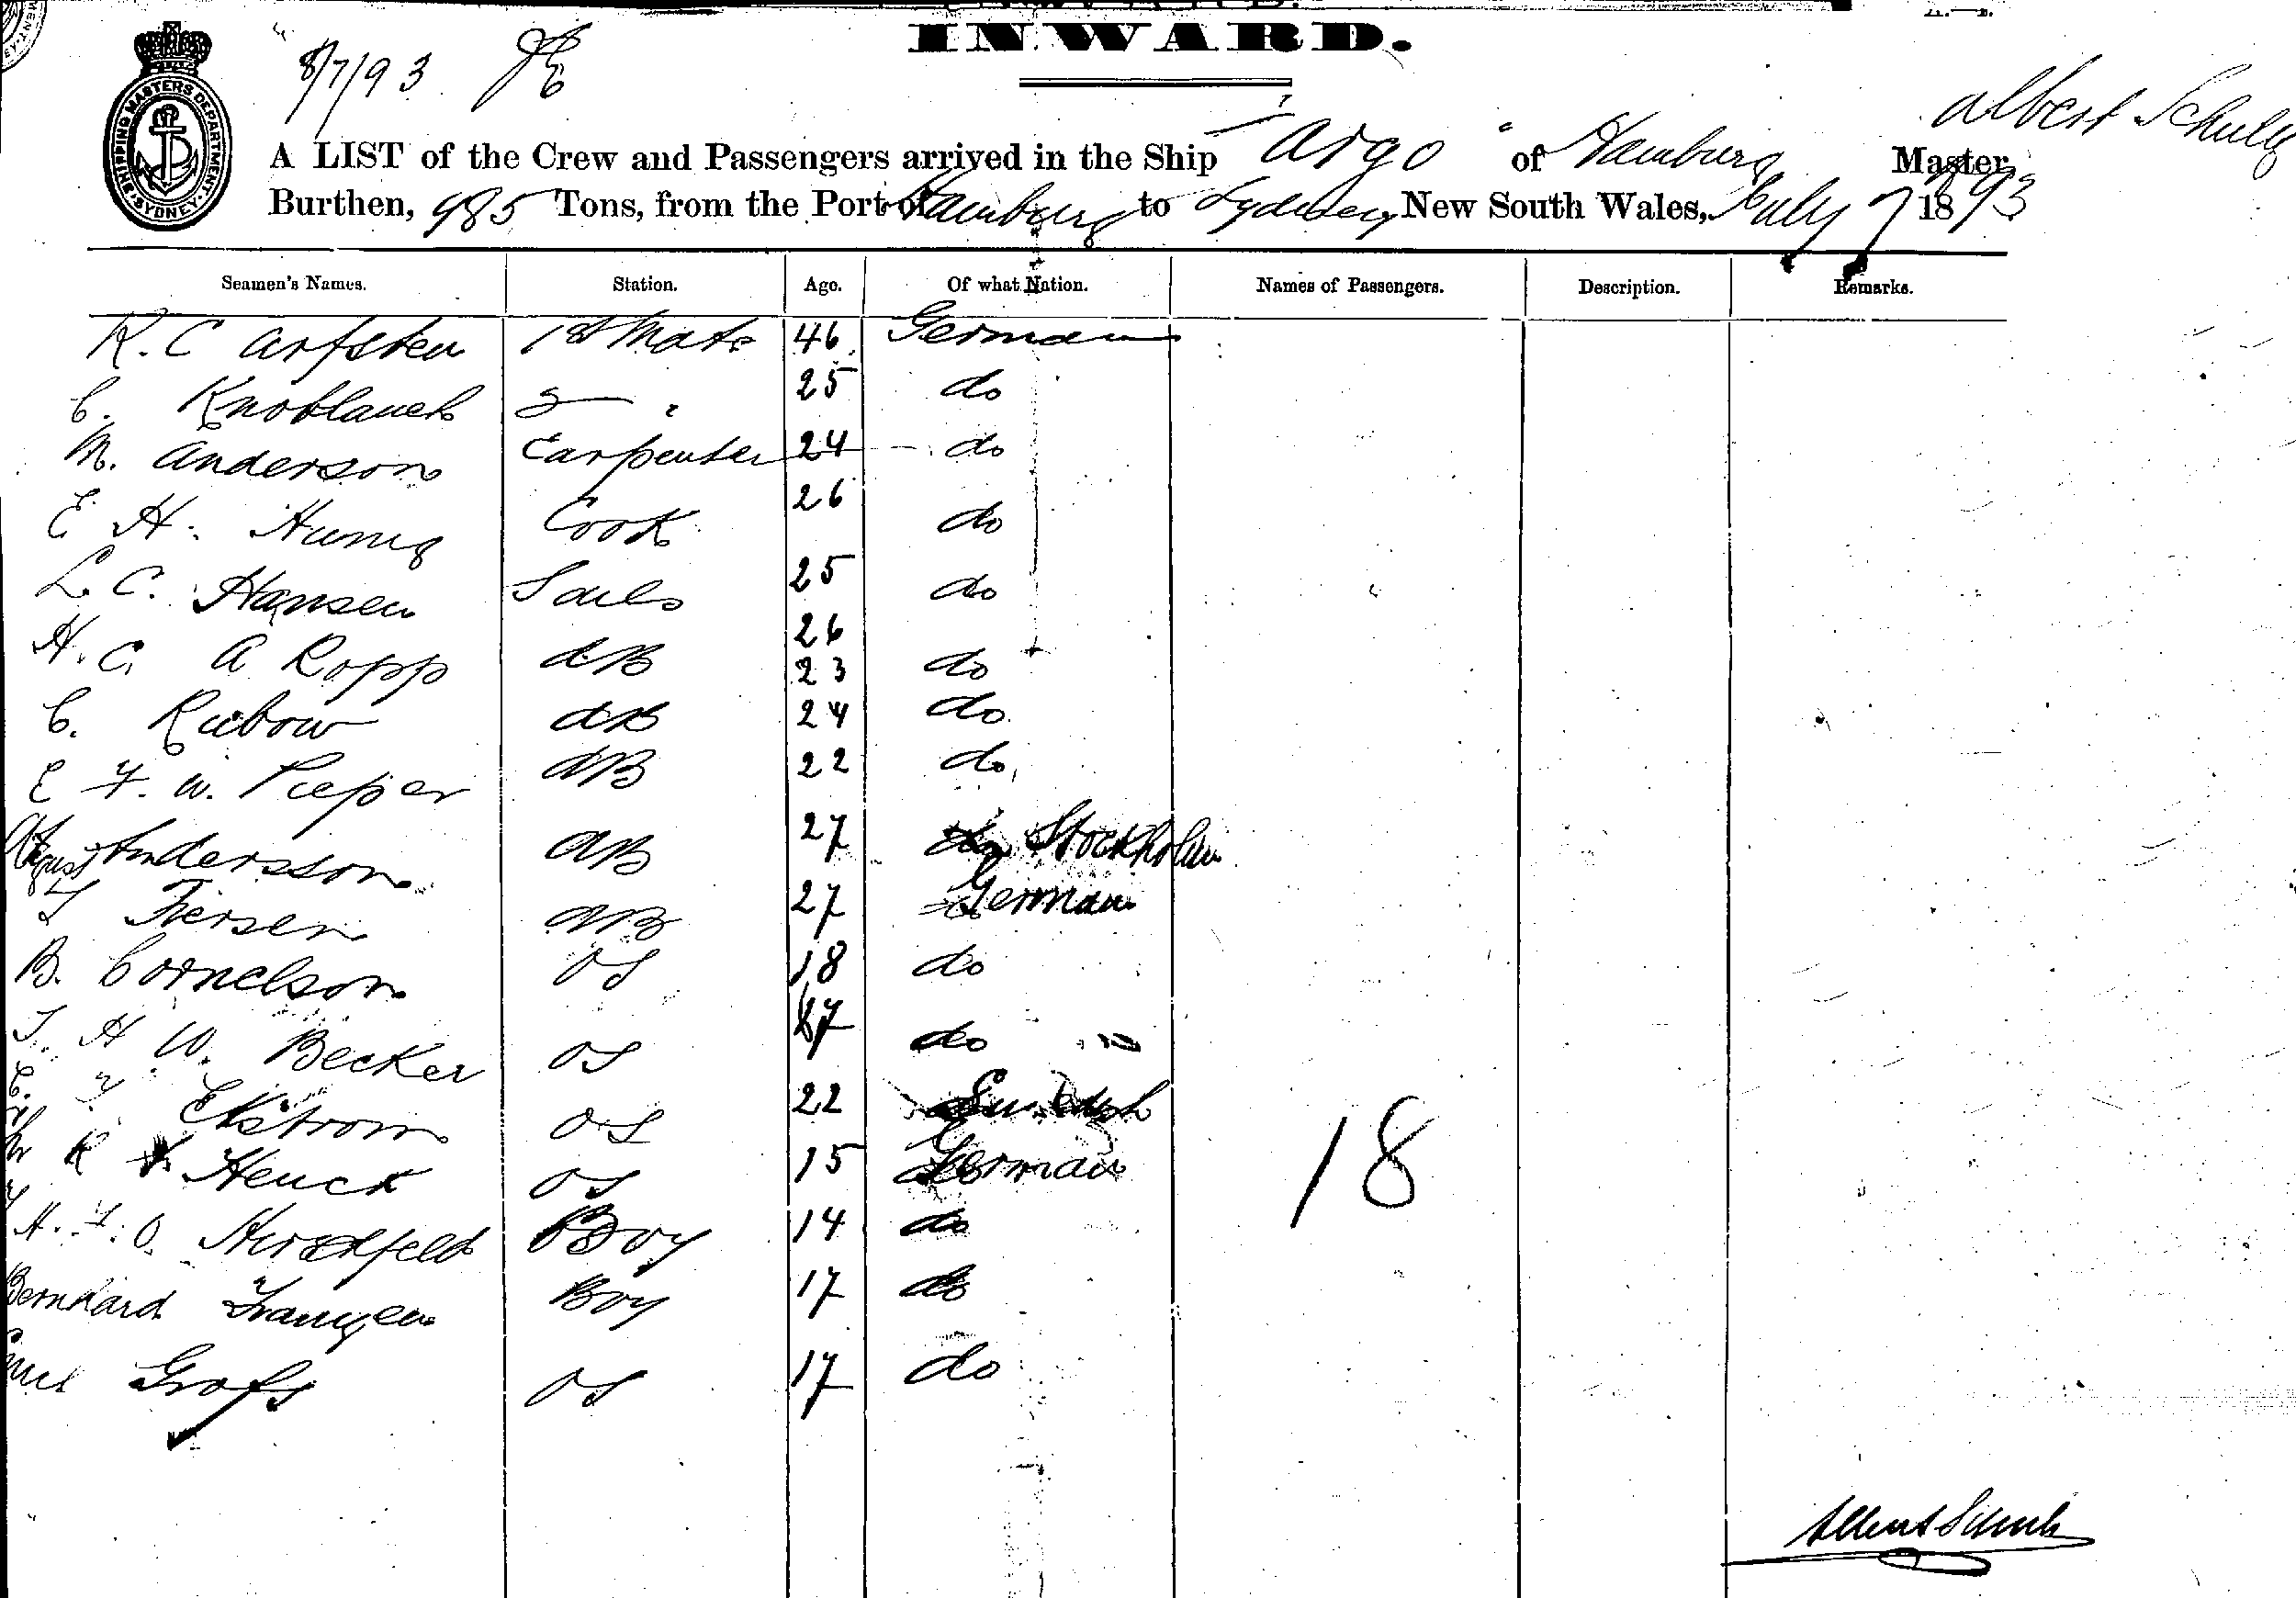 INWARD.
8/7/93
SHIPPING MASTERS DEPARTMENT
SYDNEY
Albert Schultz
A LIST of the Crew and Passengers arrived in the Ship "Argo" of Hamburg Master,
Burthen, 985 Tons, from the Port of Hamburg to Sydney, New South Wales, July 7 1893
Seamen's Names. Station. Age. Of what Nation. Names of Passengers. Description. Remarks.
K. C Arfsten 1st Mate 46 German
C. Knoblauch 2 " 25 do
M. Anderson Carpenter 24 do
E H. Hunig Cook 26 do
L. C. Hansen Sails 25 do
H. C. A Ropp AB 26 do
C. Rubow AB 23 24 do
E F. W. Pieper AB 22 do
August Andersson AB 27 Stockholm
Iversen AB 27 German
B. Cornelson OS 18 do
J. H W. Becker OS 17 do
C. F Ekstrom OS 22 Swedish
K Henck OS 15 German
H. F. O. Boy 14 do
18
Bernhard Boy 17 do
Emil Grofs OS 17 do
Albert Schultz